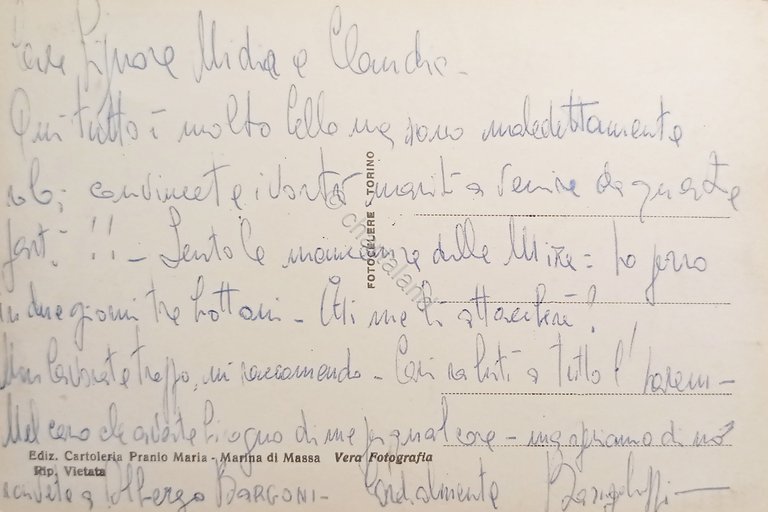 Care Signore Midia e Claudia -
Qui tutto è molto bello ma sono maledettamente
solo; convincete i vostri mariti a venire da queste
parti !! - Sento la mancanza delle Mire = Ho perso
in due giorni tre bottoni - Chi me li attaccherà?
Non lavorate troppo, mi raccomando - Cari saluti a tutto l'harem -
Nel caso che aveste bisogno di me per qualcosa - ma speriamo di no
scrivete a Albergo BARGONI - Cordialmente
FOTOCELERE - TORINO
Ediz. Cartoleria Pranio Maria - Marina di Massa Vera Fotografia
Rip. Vietata